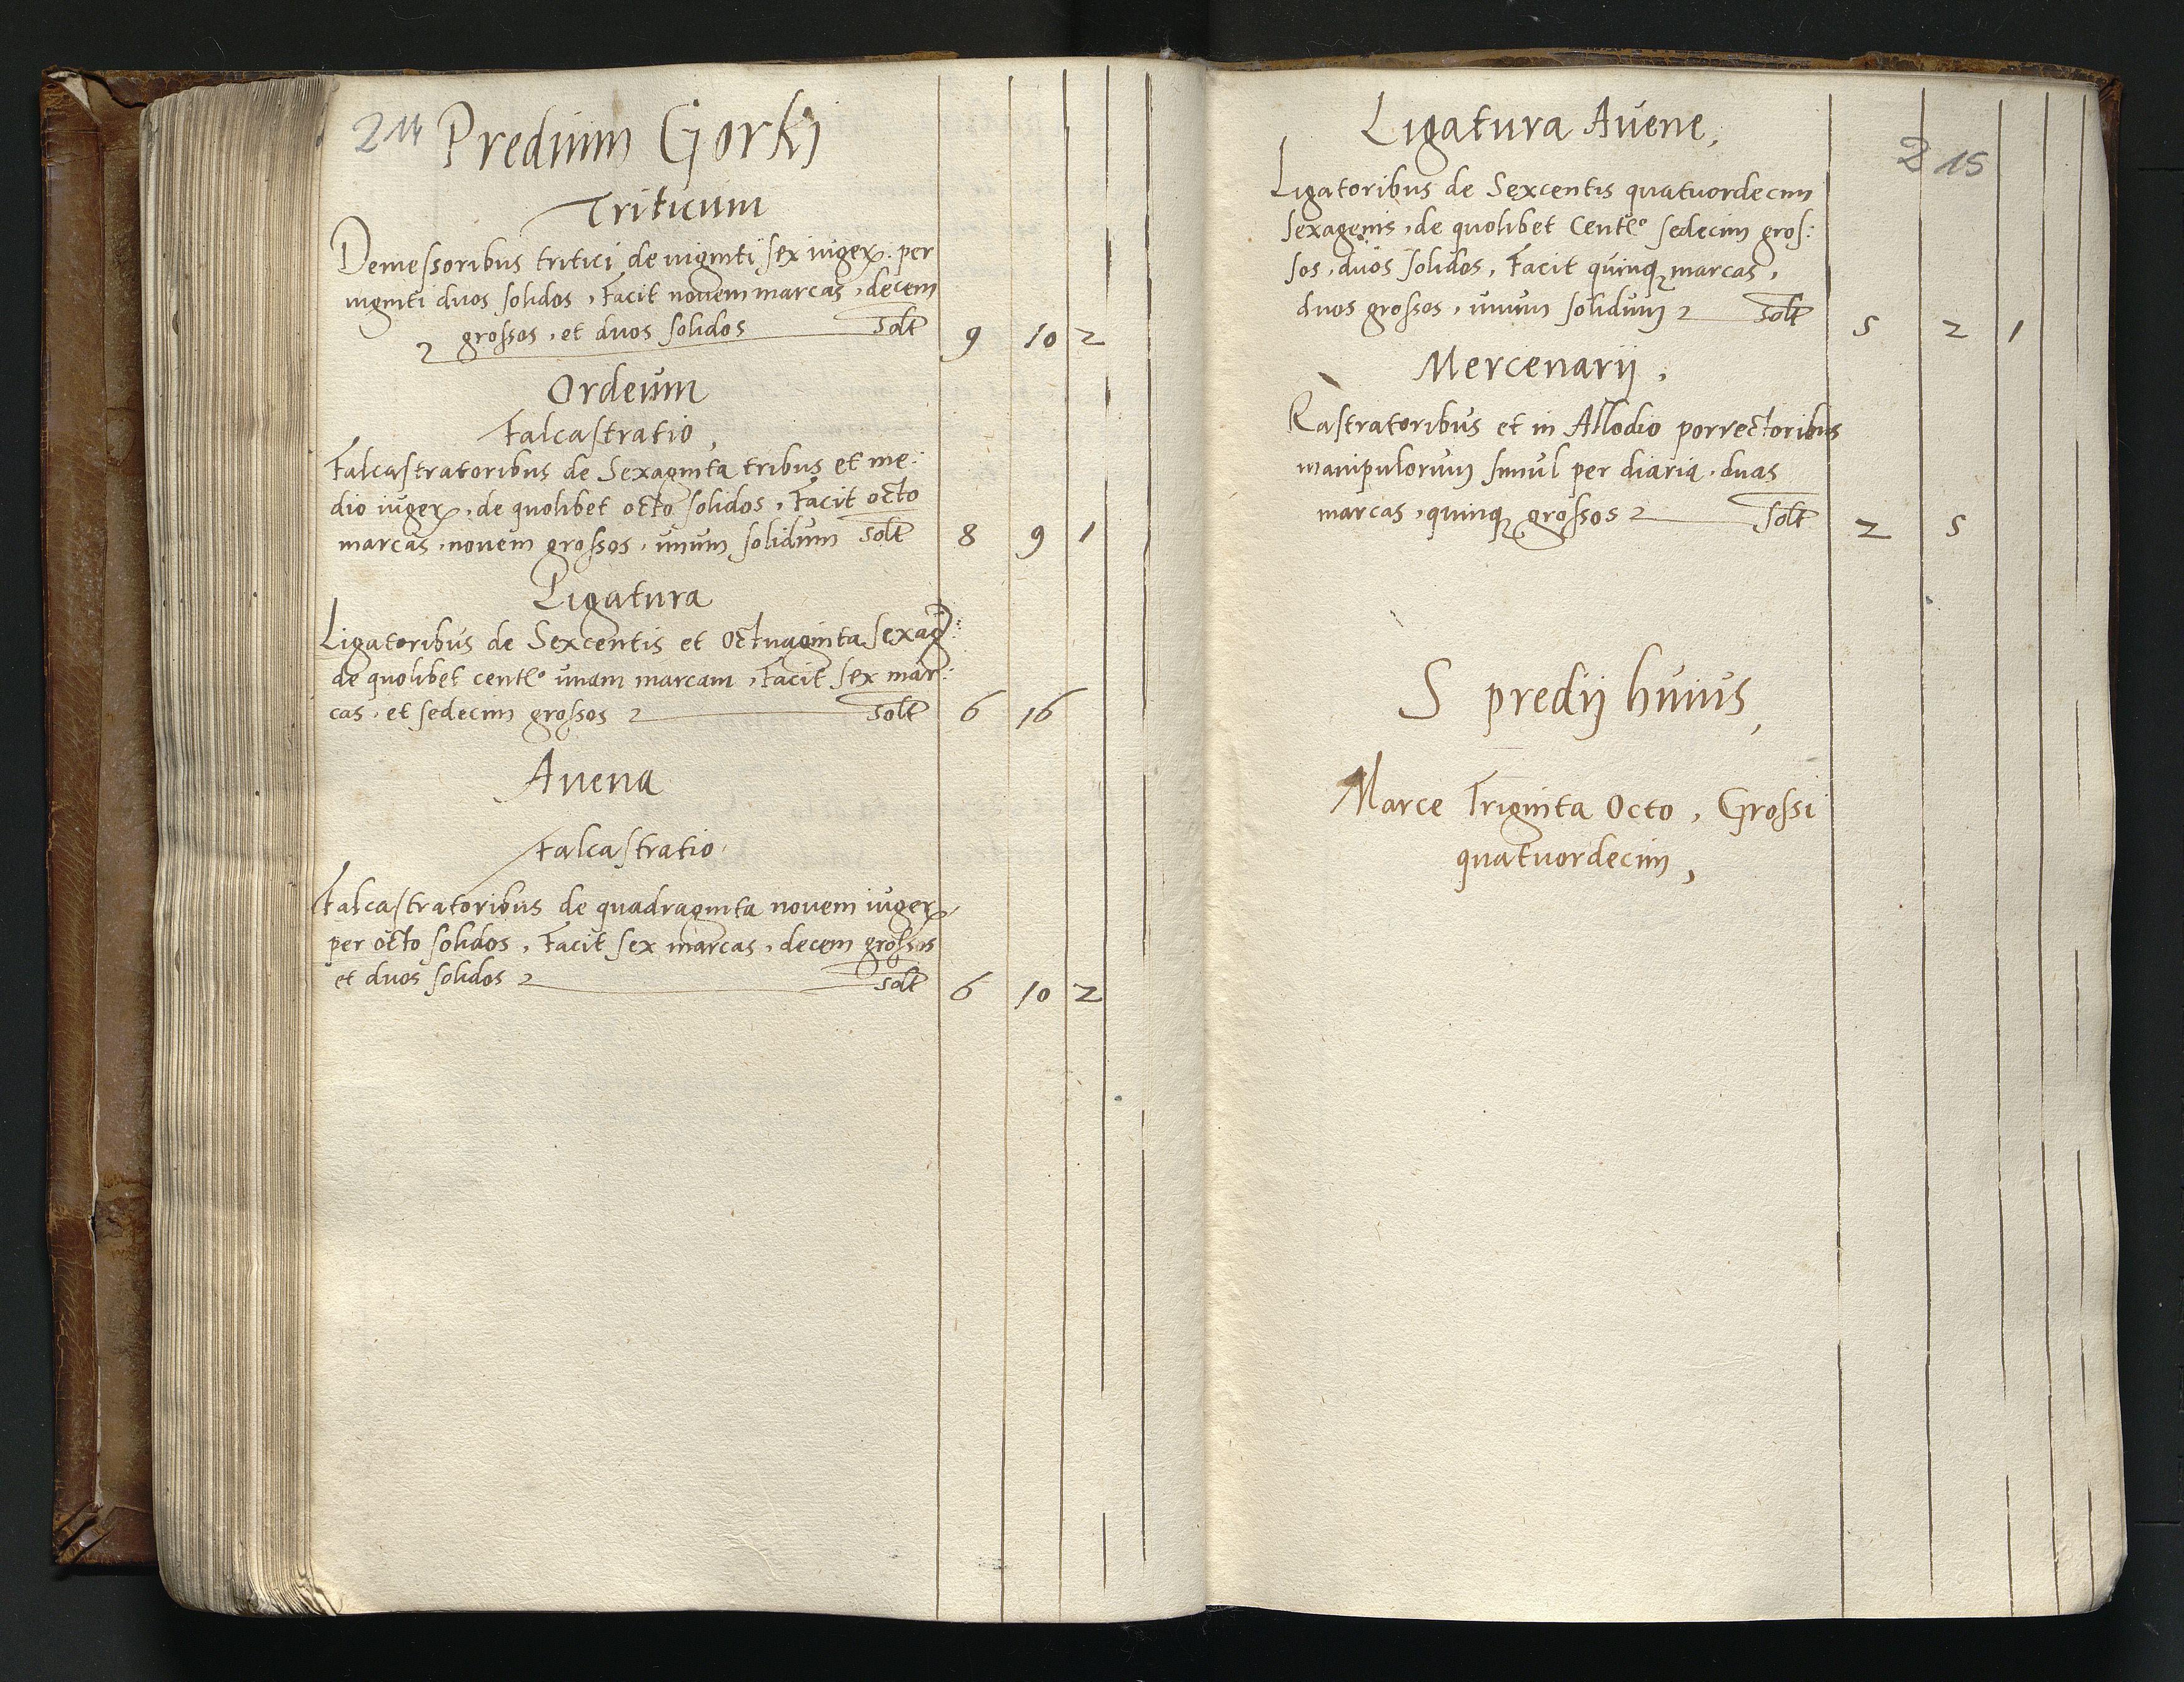 214
Predium Gorki
Triticum
Demessoribus tritici de viginti sex iuger. per
viginti duos solidos, Facit novem marcas, decem
grossos, et duos solidos solt 9 10 2
Ordeum
Falcastratio,
Falcastratoribus de Sexaginta tribus et me:
dio iuger, de quolibet octo solidos, Facit octo
marcas, novem grossos, unum solidum solt 8 9 1
Ligatura
Ligatoribus de Sexcentis et Octuaginta sexag:
de quolibet cent.o unam marcam, Facit sex mar:
cas, et sedecim grossos solt 6 16
Avena
Falcastratio
Falcastratoribus de quadraginta novem iuger
per octo solidos, Facit sex marcas, decem grossos
et duos solidos solt 6 10 2
215
Ligatura Avene,
Ligatoribus de Sexcentis quatuordecim
sexagenis, de quolibet Cent.o sedecim gros:
sos, duos solidos, Facit quinq marcas,
duos grossos, unum solidum solt 5 2 1
Mercenarij,
Rastratoribus et in Allodio porrectoribus
manipulorum simul per diaria, duas
marcas, quinq grossos solt 2 5
S predij huius,
Marce Triginta Octo, Grossi
quatuordecim,